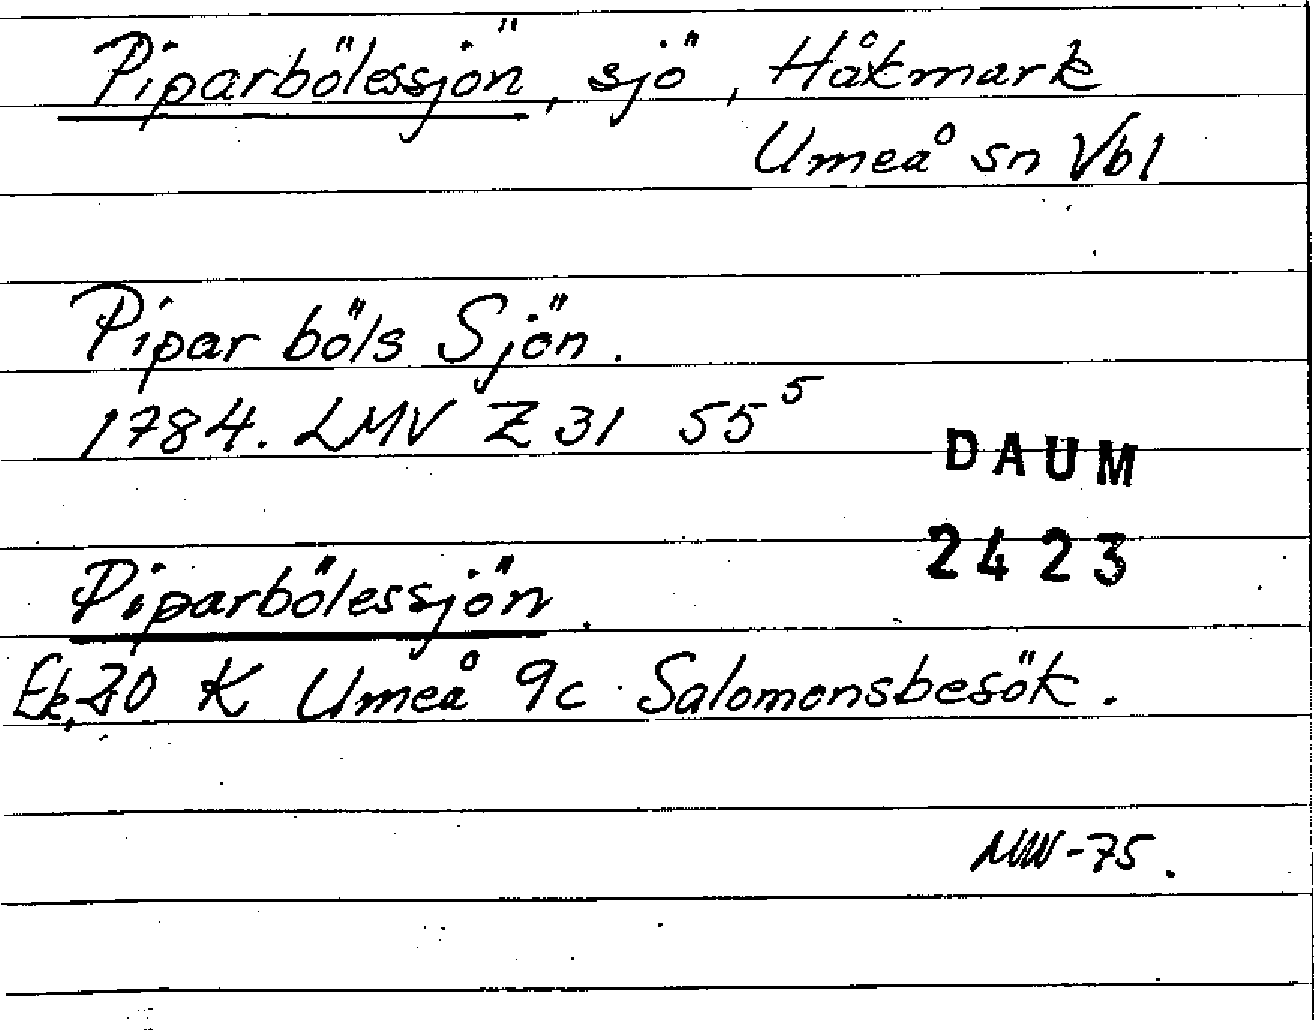 Piparbölessjön, sjö, Håkmark
Umeå sn Vbl
Pipar böls Sjön.
1784. LMV Z 31 55⁵
DAUM
2423
Piparbölessjön.
Ek. 20 K Umeå 9c Salomonsbesök.
-75.